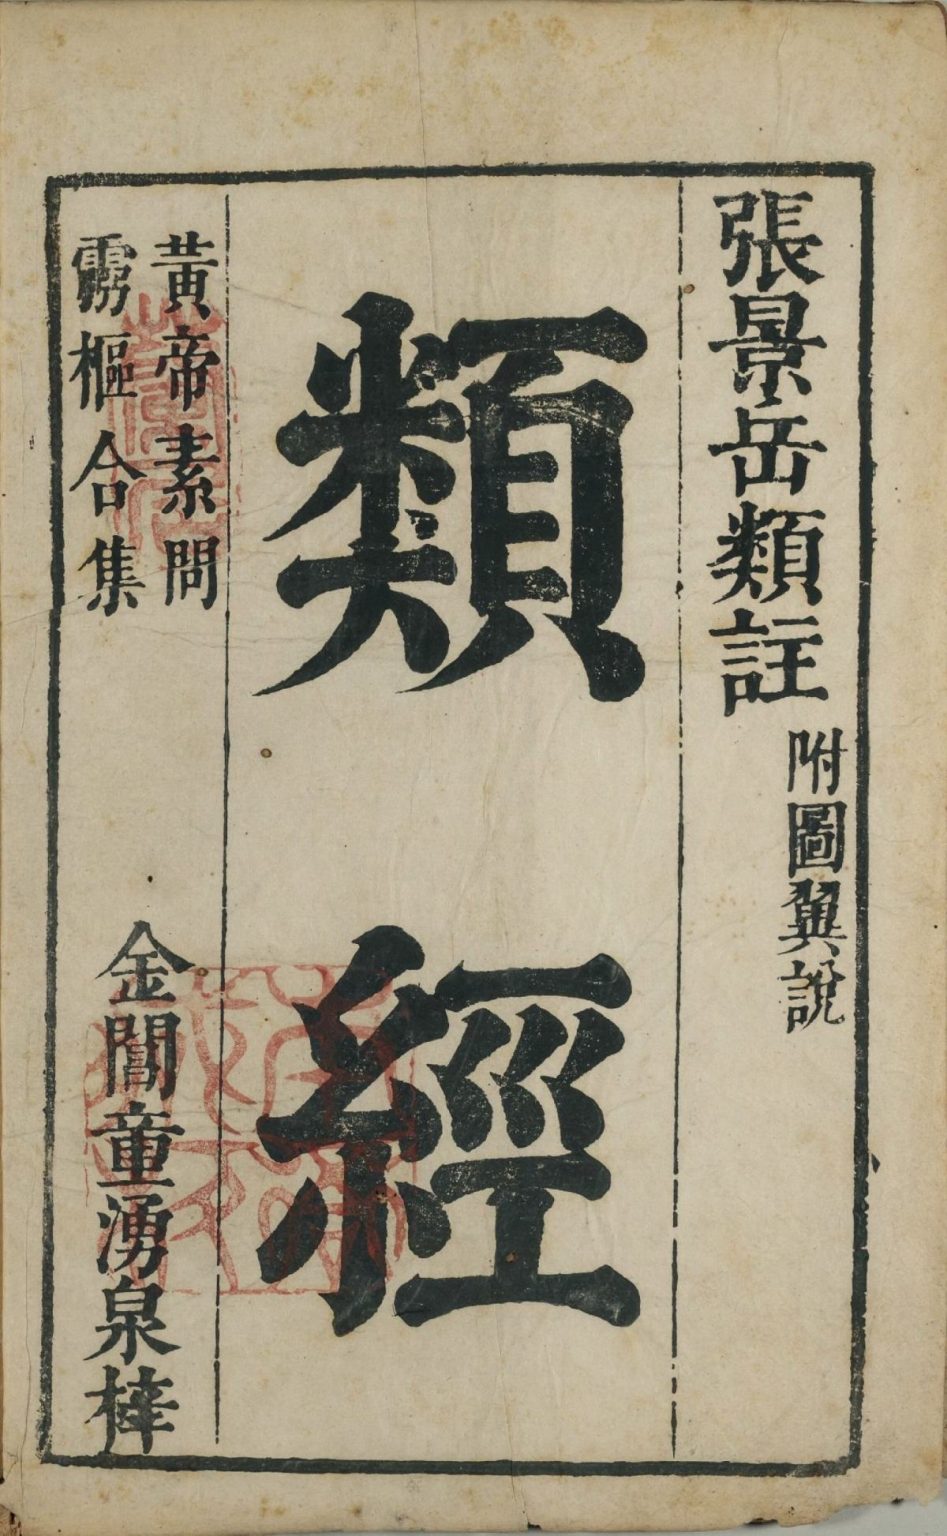 張景岳類註
附圖翼說
類經
黃帝素問
霛樞合集
金閶童湧泉梓